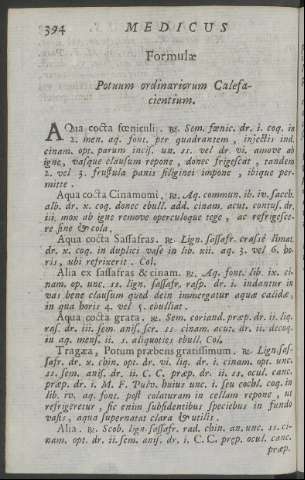 394 MEDICUS
Formulæ
Potuum ordinariorum Calefa-
cientium.
AQua cocta fœniculi. ℞. Sem. fœnic. dr. i. coq. in
2. men. aq. font. per quadrantem, injectis ind.
cinam. opt. parum incis. un. ss. vel dr. vi. amove ab
igne, vasque clausum repone, donec frigescat, tandem
2. vel 3. frustula panis siliginei impone, ibique per-
mitte.
Aqua cocta Cinamomi. ℞. Aq. commun. ib. iv. sacch.
alb. dr. x. coq. donec ebull. add. cinam. acut. contus. dr.
iii. mox ab igne remove operculoque tege, ac refrigesce-
re sine & cola.
Aqua cocta Sassafras. ℞. Lign. sassafr. crassè limat.
dr. x. coq. in duplici vase in lib. xii. aq. 3. vel 6. ho-
ris, ubi refrixerit. Col.
Alia ex sassafras & cinam. ℞. Aq. font. lib. ix. ci-
nam. op. unc. ss. lign. sassafr. rasp. dr. i. indantur in
vas bene clausum quod dein immergatur aqua calida,
in qua horis 4. vel 5. ebulliat.
Aqua cocta grata. ℞. Sem. coriand. præp. dr. ii. liq.
ras. dr. iii. sem. anis. scr. ss. cinam. acut. dr. ii. decoq.
in aq. mens. ii. s. aliquoties ebull. Col.
Tragæa, Potum præbens gratissimum. ℞. Lign. sas-
safr. dr. x. chin. opt. dr. vi. liq. dr. i. cinam. opt. unc.
ss. sem. anis. dr. ii. C. C. præp. dr. ii. ss. ocul. canc.
præp. dr. i. M. F. Pulv. huius unc. i. seu cochl. coq. in
lib. iv. aq. font. post colaturam in cellam repone, ut
refrigeretur, sic enim subsidentibus speciebus in fundo
vasis, aqua supernatat clara & utilis.
Alia. ℞. Scob. lign. sassafr. rad. chin. an. unc. ss. ci-
nam. opt. dr. ii. sem. anis. dr. i. C. C. præp. ocul. canc.
præp.